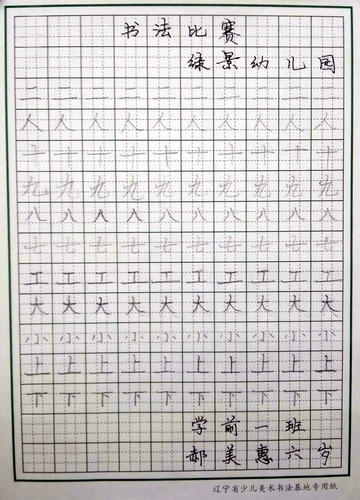 书法比赛
绿景幼儿园
二二二二二二二二二二
人人人人人人人人人人
十十十十十十十十十十
九九九九九九九九九九
八八八八八八八八八八
七七七七七七七七七七
工工工工工工工工工工
大大大大大大大大大大
小小小小小小小小小小
上上上上上上上上上上
下下下下下下下下下下
学前一班
郝美惠六岁
辽宁省少儿美术书法基地专用纸